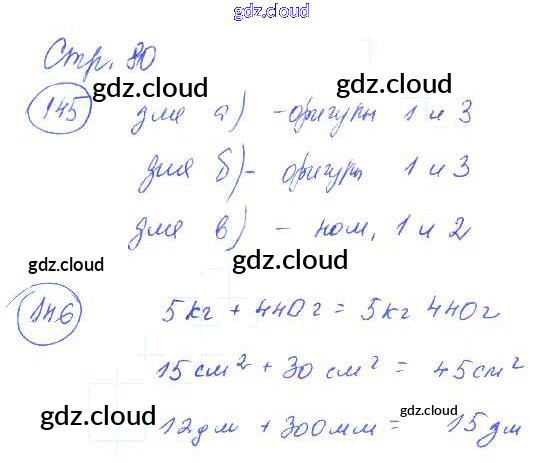 gdz.cloud
Стр. 80
gdz.cloud gdz.cloud
145 для а) - фигуры 1 и 3
gdz.cloud
для б) - фигуры 1 и 3
для в) - ном. 1 и 2
gdz.cloud gdz.cloud
146 5 кг + 440 г = 5 кг 440 г
gdz.cloud
15 см² + 30 см² = 45 см²
gdz.cloud gdz.cloud
12 дм + 300 мм = 15 дм
gdz.cloud